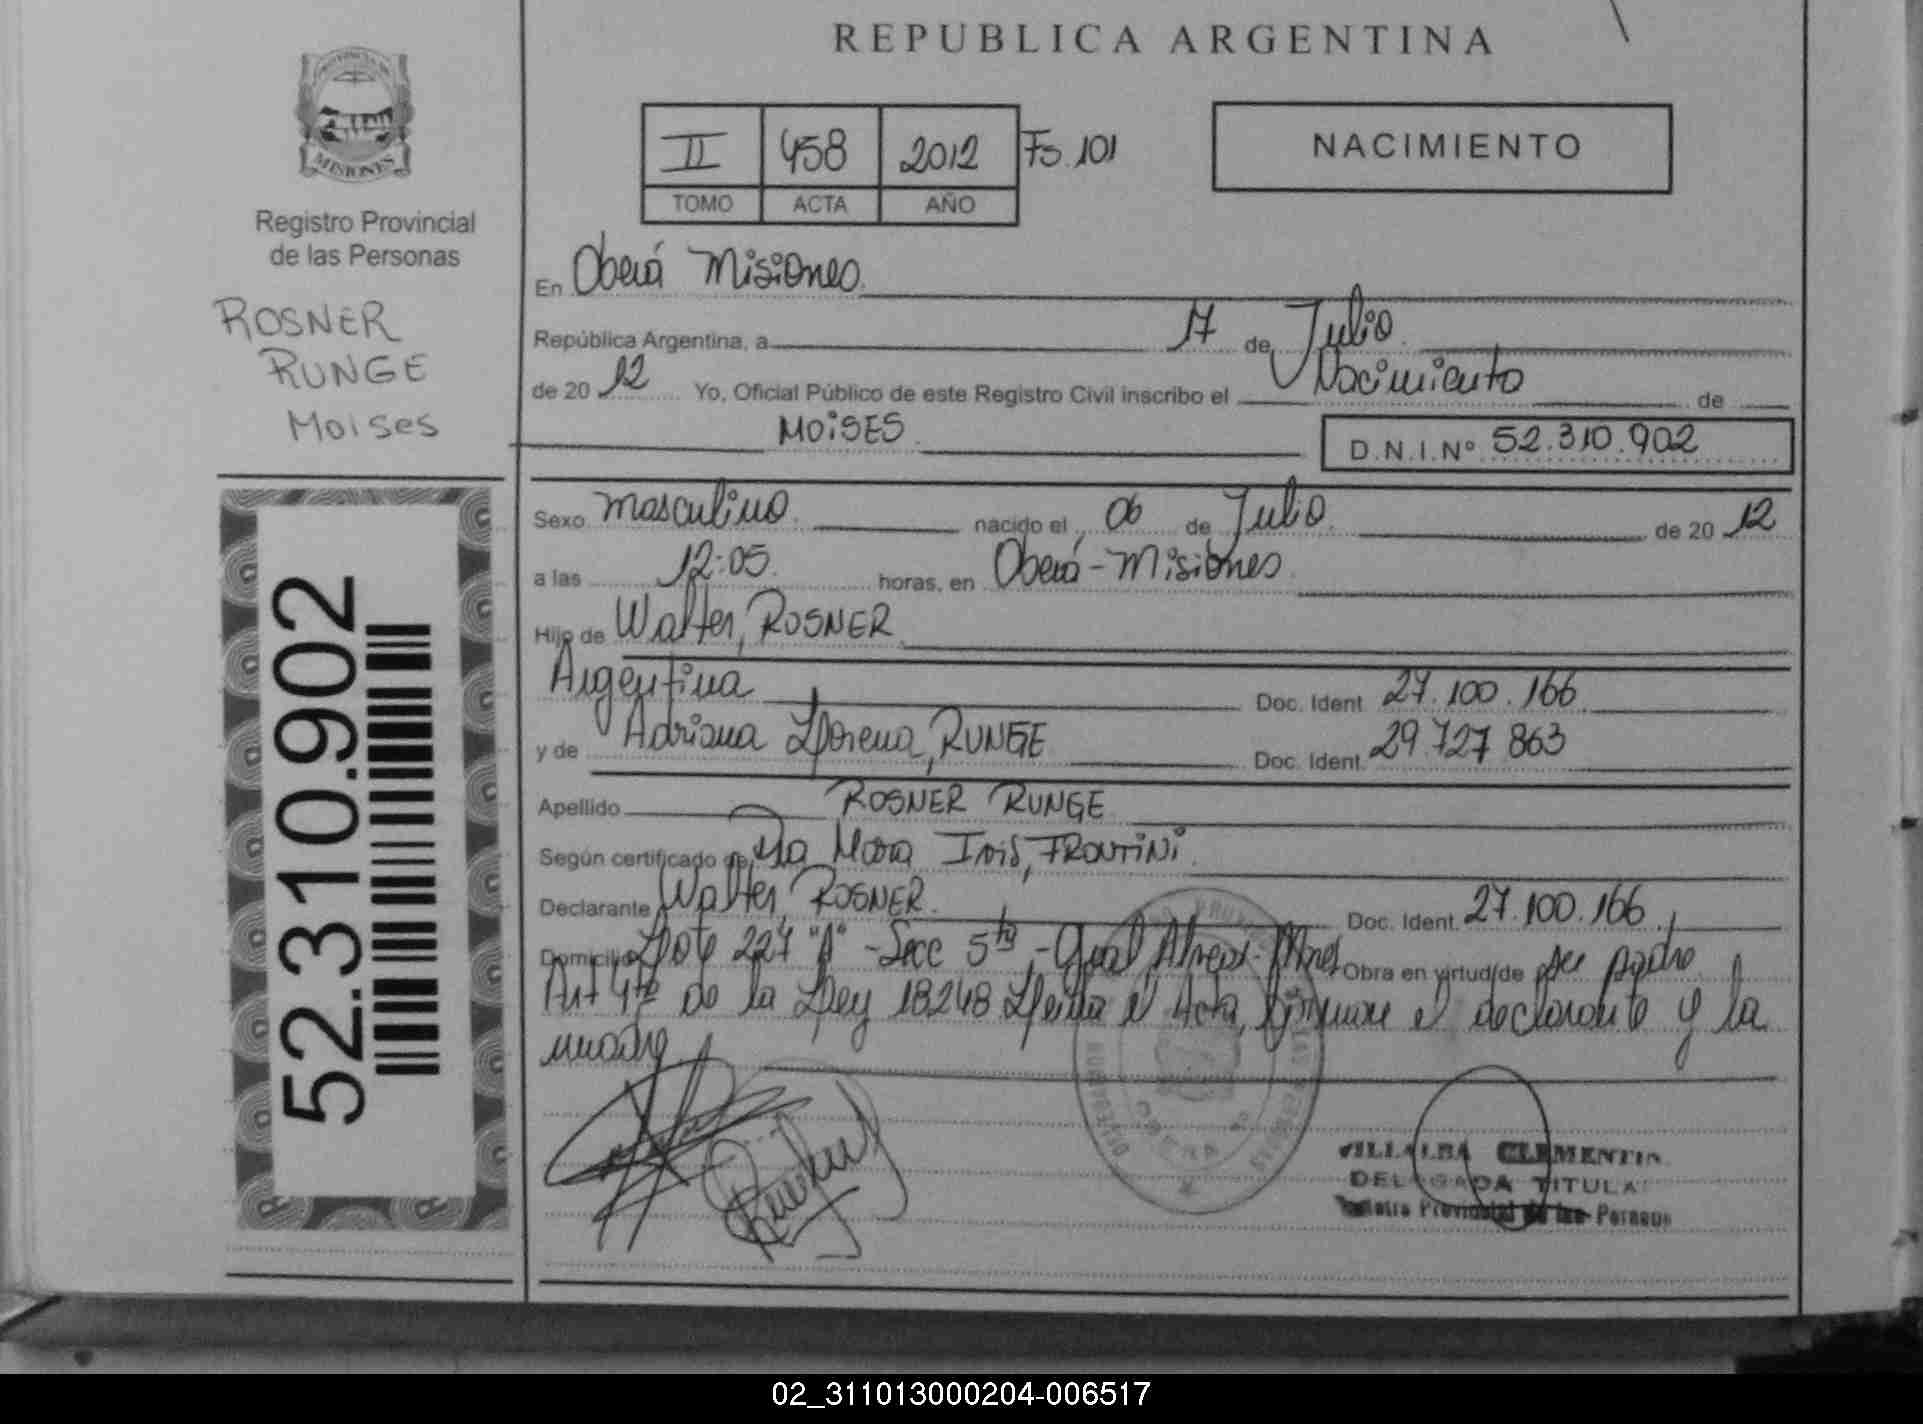 REPUBLICA ARGENTINA
MISIONES
Registro Provincial
de las Personas
ROSNER
RUNGE
Moises
52.310.902
II 458 2012 Fs. 101
TOMO ACTA AÑO
NACIMIENTO
En Oberá Misiones
República Argentina, a 17 de Julio
de 20 12 Yo, Oficial Público de este Registro Civil inscribo el Nacimiento de
MOiSES D.N.I.Nº 52.310.902
Sexo masculino nacido el 06 de Julio de 20 12
a las 12:05 horas, en Oberá - Misiones
Hijo de Walter, ROSNER
Argentina Doc. Ident. 27.100.166
y de Adriana Lorena, RUNGE Doc. Ident. 29.727.863
Apellido ROSNER RUNGE
Según certificado de Dra Mara Iris, FRONTiNi
Declarante Walter, ROSNER Doc. Ident. 27.100.166
Domicilio Lote 227 "A" - Secc 5ta - Gral Alvear - Mnes Obra en virtud de ser padre
Art 4to de la Ley 18248 Leida el Acta, firman el declarante y la
madre
VILLALBA CLEMENTIN
DELEGADA TITULAR
Registro Provincial de las Personas
02_311013000204-006517